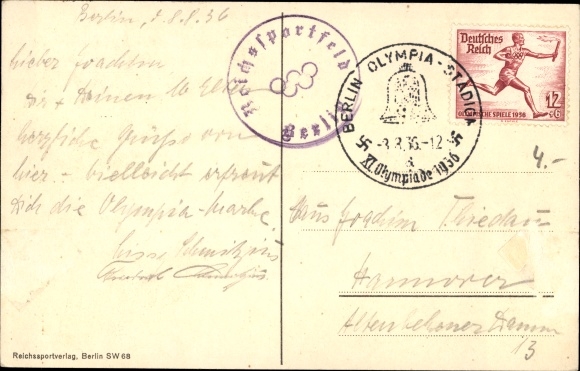 Berlin, d. 8.8.36
Lieber Joachim
Dir + Deinen lb Eltern
herzliche Grüße von
hier - vielleicht erfreut
Dich die Olympia-Marke.
Reichssportfeld
Berlin
BERLIN OLYMPIA-STADION
-8.8.36.-12
a
XI. Olympiade 1936
Deutsches
Reich
12
+6
OLYMPISCHE SPIELE 1936
4.-
Hans Joachim
Hannover
Altenbekener Damm
13
Reichssportverlag, Berlin SW 68